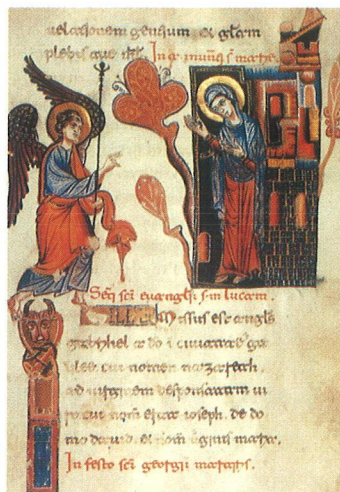 uelationem gentium et gl̄am
plebis tue isr̄l. In
Seq̄ sc̄i euangl̄ii s̄m lucam.
Missus est angl̄s
gabrihel a do ī ciuitatē ga
lilee cui nomen nazareth.
ad uirginem desponsatam ui
ro cui nom̄ erat ioseph. de do
mo dauid. et nom̄ uginis maria.
In festo sc̄i georgii martiris.